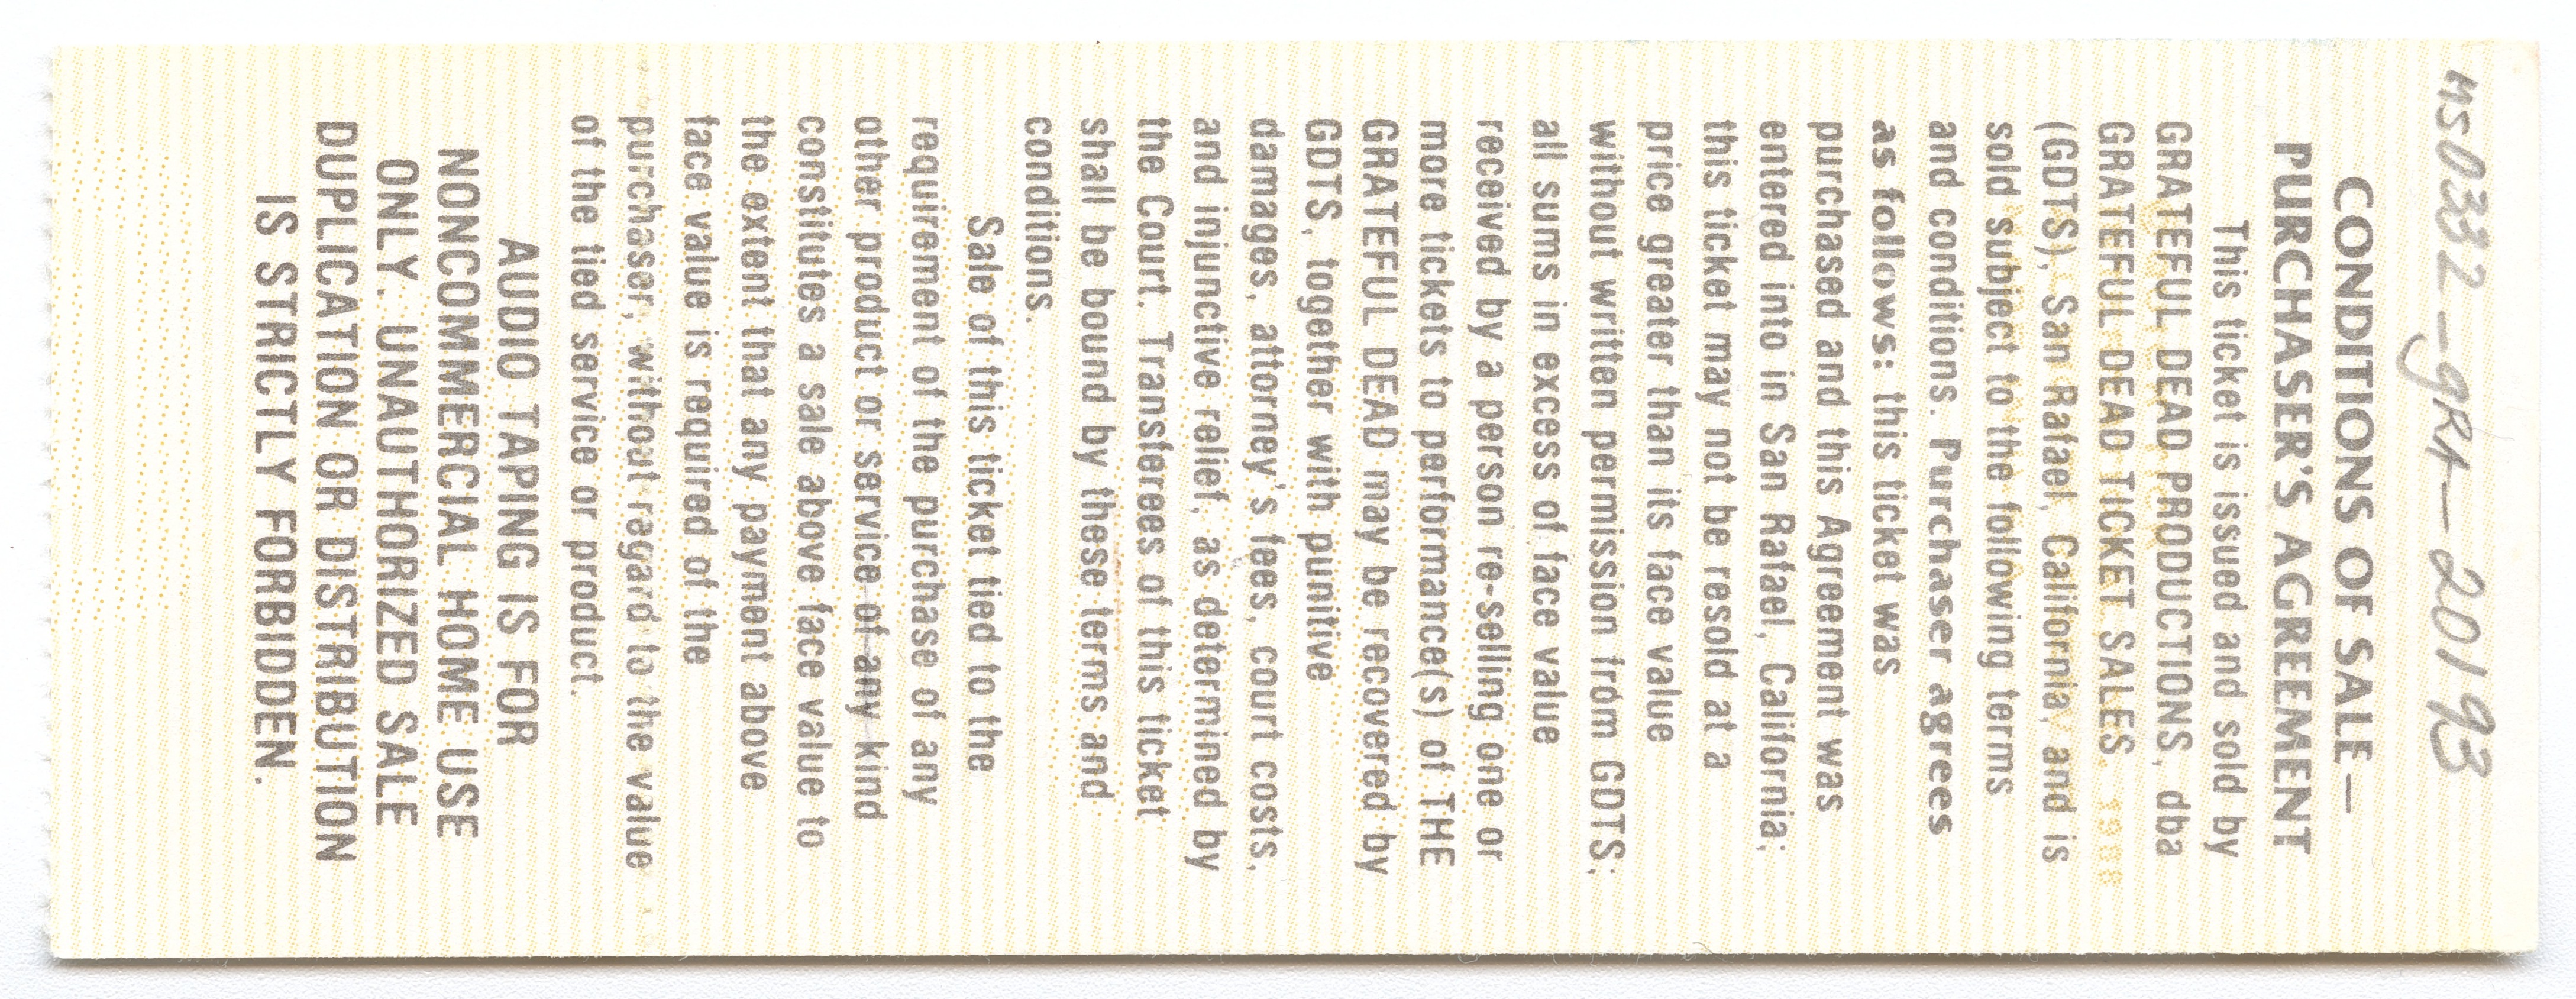 ms0332-gra-20193
CONDITIONS OF SALE—
PURCHASER'S AGREEMENT
This ticket is issued and sold by
GRATEFUL DEAD PRODUCTIONS, dba
GRATEFUL DEAD TICKET SALES,
(GDTS), San Rafael, California, and is
sold subject to the following terms
and conditions. Purchaser agrees
as follows: this ticket was
purchased and this Agreement was
entered into in San Rafael, California;
this ticket may not be resold at a
price greater than its face value
without written permission from GDTS;
all sums in excess of face value
received by a person re-selling one or
more tickets to performance(s) of THE
GRATEFUL DEAD may be recovered by
GDTS, together with punitive
damages, attorney's fees, court costs,
and injunctive relief, as determined by
the Court. Transferees of this ticket
shall be bound by these terms and
conditions.
Sale of this ticket tied to the
requirement of the purchase of any
other product or service of any kind
constitutes a sale above face value to
the extent that any payment above
face value is required of the
purchaser, without regard to the value
of the tied service or product.
AUDIO TAPING IS FOR
NONCOMMERCIAL HOME USE
ONLY. UNAUTHORIZED SALE
DUPLICATION OR DISTRIBUTION
IS STRICTLY FORBIDDEN.